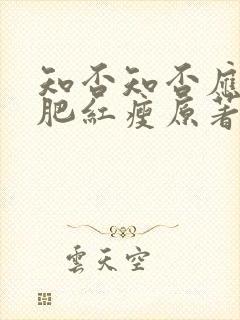 知否知否應
肥紅瘦原著
雲天空